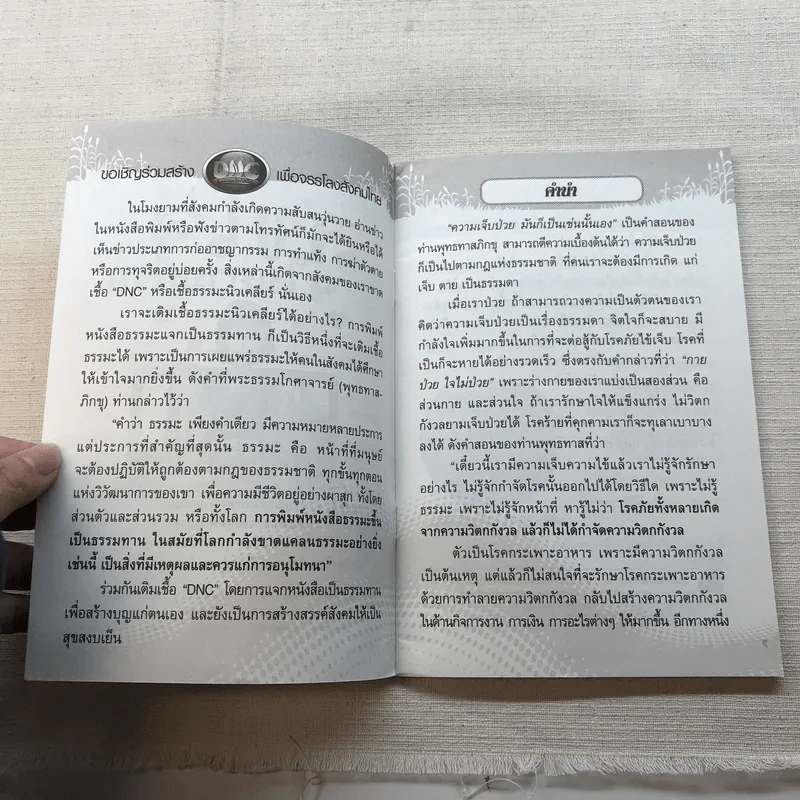 ขอเชิญร่วมสร้าง DNC เพื่อจรรโลงสังคมไทย
ในโมงยามที่สังคมกำลังเกิดความสับสนวุ่นวาย อ่านข่าว
ในหนังสือพิมพ์หรือฟังข่าวตามโทรทัศน์ก็มักจะได้ยินหรือได้
เห็นข่าวประเภทการก่ออาชญากรรม การทำแท้ง การฆ่าตัวตาย
หรือการทุจริตอยู่บ่อยครั้ง สิ่งเหล่านี้เกิดจากสังคมของเราขาด
เชื้อ “DNC” หรือเชื้อธรรมะนิวเคลียร์ นั่นเอง
เราจะเติมเชื้อธรรมะนิวเคลียร์ได้อย่างไร? การพิมพ์
หนังสือธรรมะแจกเป็นธรรมทาน ก็เป็นวิธีหนึ่งที่จะเติมเชื้อ
ธรรมะได้ เพราะเป็นการเผยแพร่ธรรมะให้คนในสังคมได้ศึกษา
ให้เข้าใจมากยิ่งขึ้น ดังคำที่พระธรรมโกศาจารย์ (พุทธทาส-
ภิกขุ) ท่านกล่าวไว้ว่า
“คำว่า ธรรมะ เพียงคำเดียว มีความหมายหลายประการ
แต่ประการที่สำคัญที่สุดนั้น ธรรมะ คือ หน้าที่ที่มนุษย์
จะต้องปฏิบัติให้ถูกต้องตามกฎของธรรมชาติ ทุกขั้นทุกตอน
แห่งวิวัฒนาการของเขา เพื่อความมีชีวิตอยู่อย่างผาสุก ทั้งโดย
ส่วนตัวและส่วนรวม หรือทั้งโลก การพิมพ์หนังสือธรรมะขึ้น
เป็นธรรมทาน ในสมัยที่โลกกำลังขาดแคลนธรรมะอย่างยิ่ง
เช่นนี้ เป็นสิ่งที่มีเหตุผลและควรแก่การอนุโมทนา”
ร่วมกันเติมเชื้อ “DNC” โดยการแจกหนังสือเป็นธรรมทาน
เพื่อสร้างบุญแก่ตนเอง และยังเป็นการสร้างสรรค์สังคมให้เป็น
สุขสงบเย็น
คำนำ
“ความเจ็บป่วย มันก็เป็นเช่นนั้นเอง” เป็นคำสอนของ
ท่านพุทธทาสภิกขุ สามารถตีความเบื้องต้นได้ว่า ความเจ็บป่วย
ก็เป็นไปตามกฎแห่งธรรมชาติ ที่คนเราจะต้องมีการเกิด แก่
เจ็บ ตาย เป็นธรรมดา
เมื่อเราป่วย ถ้าสามารถวางความเป็นตัวตนของเรา
คิดว่าความเจ็บป่วยเป็นเรื่องธรรมดา จิตใจก็จะสบาย มี
กำลังใจเพิ่มมากขึ้นในการที่จะต่อสู้กับโรคภัยไข้เจ็บ โรคที่
เป็นก็จะหายได้อย่างรวดเร็ว ซึ่งตรงกับคำกล่าวที่ว่า “กาย
ป่วย ใจไม่ป่วย” เพราะร่างกายของเราแบ่งเป็นสองส่วน คือ
ส่วนกาย และส่วนใจ ถ้าเรารักษาใจให้แข็งแกร่ง ไม่วิตก
กังวลยามเจ็บป่วยได้ โรคร้ายที่คุกคามเราก็จะทุเลาเบาบาง
ลงได้ ดังคำสอนของท่านพุทธทาสที่ว่า
“เดี๋ยวนี้เรามีความเจ็บความไข้แล้วเราไม่รู้จักรักษา
อย่างไร ไม่รู้จักกำจัดโรคนั้นออกไปได้โดยวิธีใด เพราะไม่รู้
ธรรมะ เพราะไม่รู้จักหน้าที่ หารู้ไม่ว่า โรคภัยทั้งหลายเกิด
จากความวิตกกังวล แล้วก็ไม่ได้กำจัดความวิตกกังวล
ตัวเป็นโรคกระเพาะอาหาร เพราะมีความวิตกกังวล
เป็นต้นเหตุ แต่แล้วก็ไม่สนใจที่จะรักษาโรคกระเพาะอาหาร
ด้วยการทำลายความวิตกกังวล กลับไปสร้างความวิตกกังวล
ในด้านกิจการงาน การเงิน การอะไรต่างๆ ให้มากขึ้น อีกทางหนึ่ง